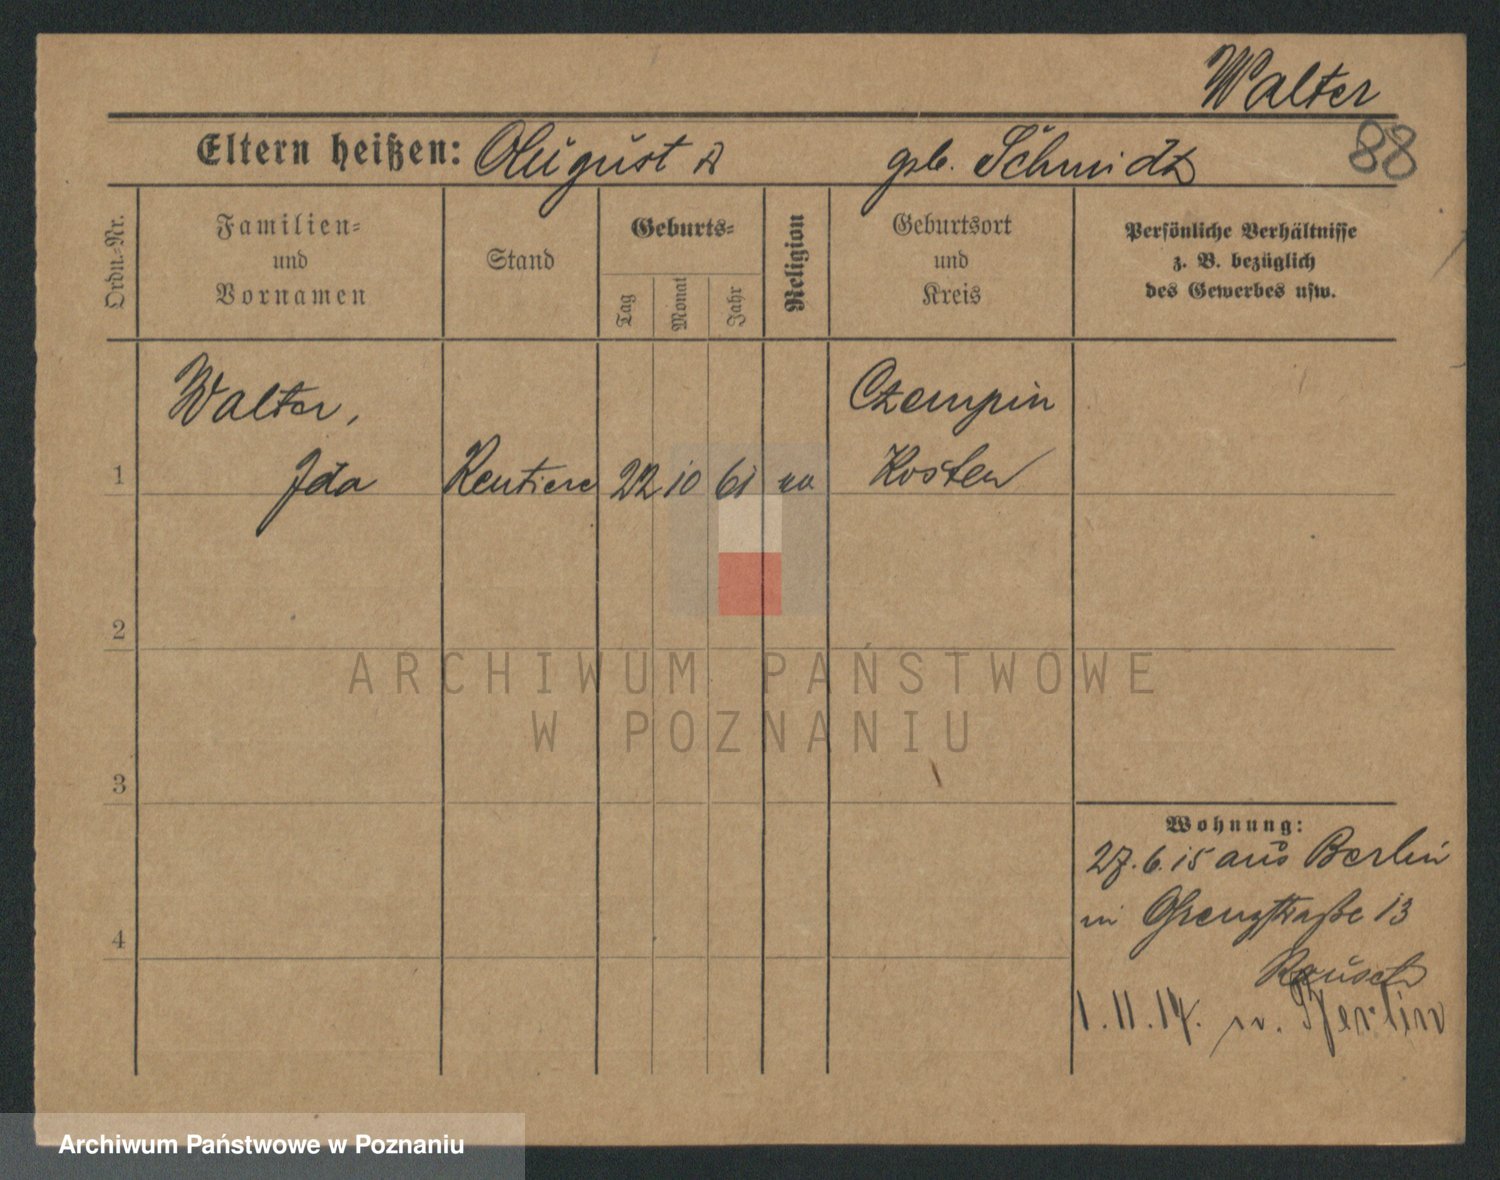 Walter
88
Eltern heißen: August u geb. Schmidt
Ordn.-Nr.
Familien-
und
Vornamen
Stand
Geburts-
Tag
Monat
Jahr
Religion
Geburtsort
und
Kreis
Persönliche Verhältnisse
z. B. bezüglich
des Gewerbes usw.
Walter, Czempin
1 Ida Rentiere 22 10 61 Kosten
2
3
4
Wohnung:
27.6.15 aus Berlin
in Grenzstraße 13
Rausch
1.11.17. n. Berlin
ARCHIWUM PAŃSTWOWE
W POZNANIU
Archiwum Państwowe w Poznaniu